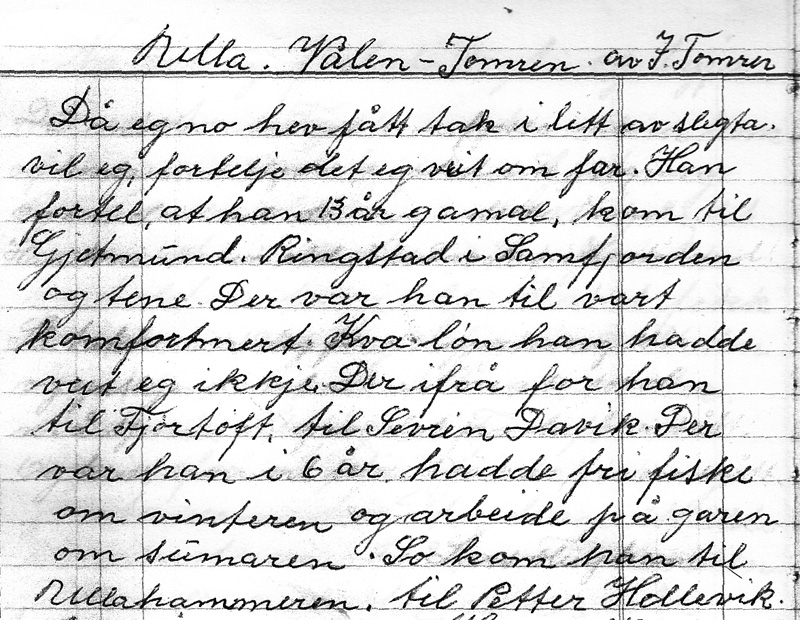 Ulla. Valen-Tomren. av J. Tomren
Då eg no hev fått tak i litt av slegta.
vil eg, fortelje det eg veit om far. Han
fortel, at han 13 år gamal, kom til
Gjetmúnd. Ringstad i Samfjorden
og tene. Der var han til vart
komfortmert. Kva løn han hadde
veit eg ikkje. Der ifrå for han
til Fjørtoft, til Sevrin Davik. Der
var han i 6 år, hadde fri fiske
om vinteren og arbeide på garen
om súmaren. So kom han til
Ullahammeren. til Petter Hellevik.